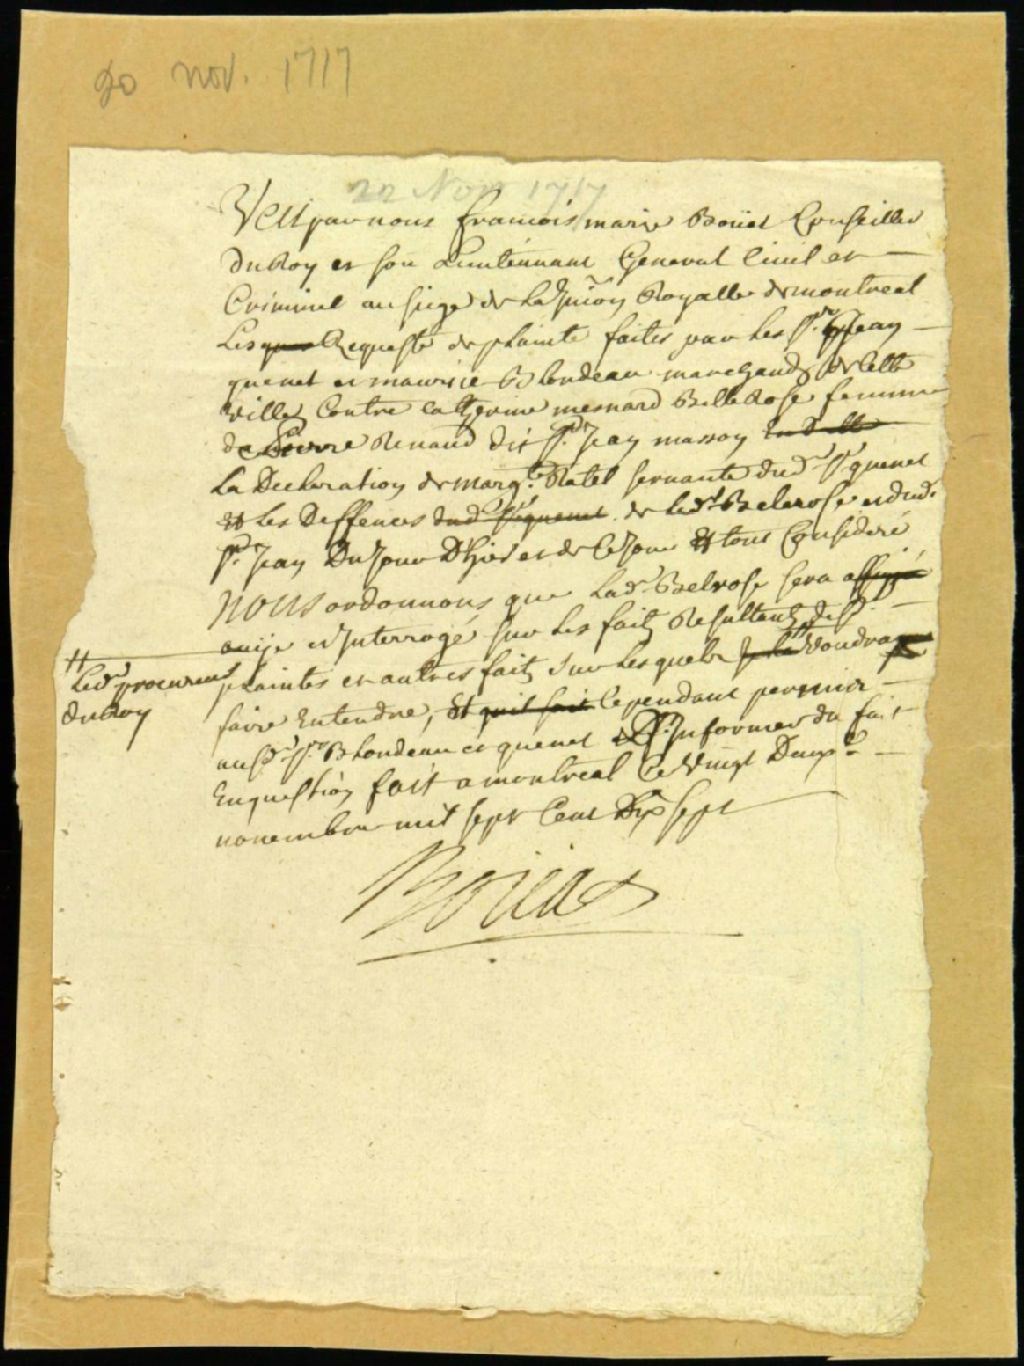 20 nov. 1717
22 Nov 1717
Veu par nous francois marie Boüat Conseiller
du Roy et son Lieutennant General Civil et
Criminel au siege de la Jurion Royalle de montreal
Les Requeste de plainte faites par les Srs Jean
quenet et maurice Blondeau marchands de cette
ville Contre catherine mesnard Belle Rose femme
de Pierre Renaud dit St Jean masson
La Declaration de margte Ratel servante dud Sr quenet
Et Les Deffences dud Sr quenet de lad Belerose et dud
St Jean Du Jour D'hier et de Ce Jour Et tout Consideré
nous ordonnons que Lad Belrose sera
ouije et Interrogé sur les faits Resultants desd
plaintes et autres faits sur lesquels voudra
Led procureur
du Roy
faire Entendre, Et quil soit Cependant permis
ausd Srs Blondeau et quenet Informer du fait
En question fait a montreal Le Vingt Deuxe
novembre mil sept Cent Dix sept
Boüat